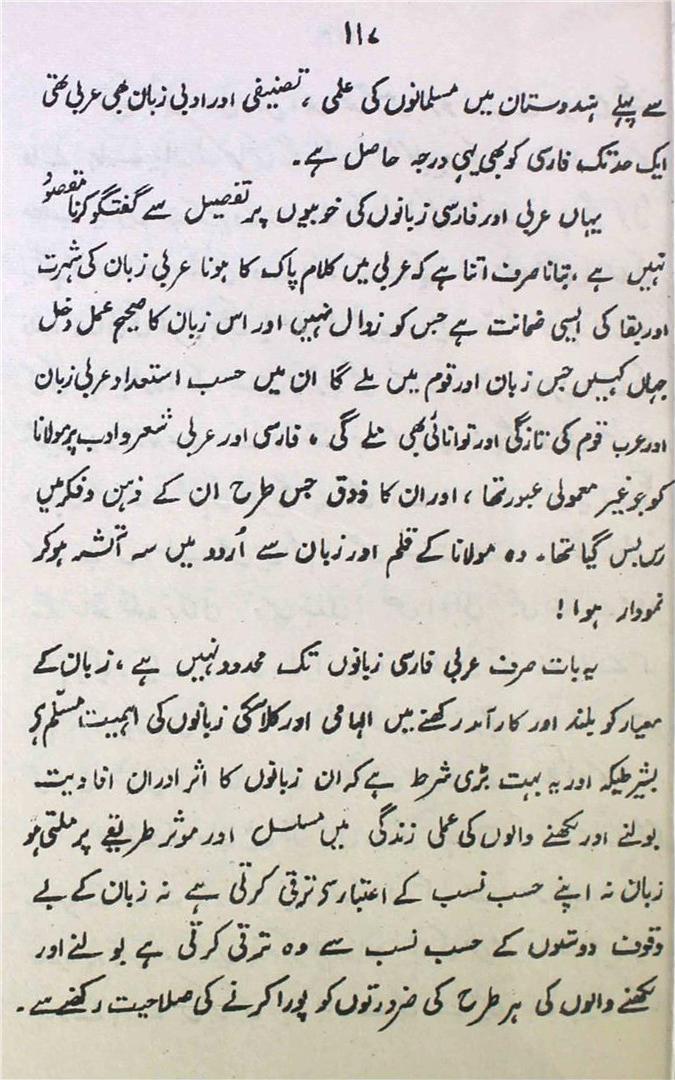 ۱۱۷
سے پہلے ہندوستان میں مسلمانوں کی علمی ، تصنیفی اور ادبی زبان بھی عربی تھی
ایک حد تک فارسی کو بھی یہی درجہ حاصل ہے۔
یہاں عربی اور فارسی زبانوں کی خوبیوں پر تفصیل سے گفتگو کرنا مقصود
نہیں ہے ، بتانا صرف اتنا ہے کہ عربی میں کلام پاک کا ہونا عربی زبان کی شہرت
اور بقا کی ایسی ضمانت ہے جس کو زوال نہیں اور اس زبان کا صحیح عمل دخل
جہاں کہیں جس زبان اور قوم میں ملے گا ان میں حسب استعداد عربی زبان
اور عرب قوم کی تازگی اور توانائی بھی ملے گی ، فارسی اور عربی شعر و ادب پر مولانا
کو جو غیر معمولی عبور تھا ، اور ان کا ذوق جس طرح ان کے ذہن و فکر میں
رس بس گیا تھا۔ وہ مولانا کے قلم اور زبان سے اُردو میں سہ آتشہ ہو کر
نمودار ہوا !
یہ بات صرف عربی فارسی زبانوں تک محدود نہیں ہے ، زبان کے
معیار کو بلند اور کار آمد رکھنے میں الہامی اور کلاسکی زبانوں کی اہمیت مسلّم ہے
بشرطیکہ اور یہ بہت بڑی شرط ہے کہ ان زبانوں کا اثر اور ان افادیت
بولنے اور لکھنے والوں کی عملی زندگی میں مسلسل اور موثر طریقے پر ملتی ہو
زبان نہ اپنے حسب نسب کے اعتبار سے ترقی کرتی ہے نہ زبان کے بے
وقوف دوستوں کے حسب نسب سے وہ ترقی کرتی ہے بولنے اور
لکھنے والوں کی ہر طرح کی ضرورتوں کو پورا کرنے کی صلاحیت رکھنے سے۔